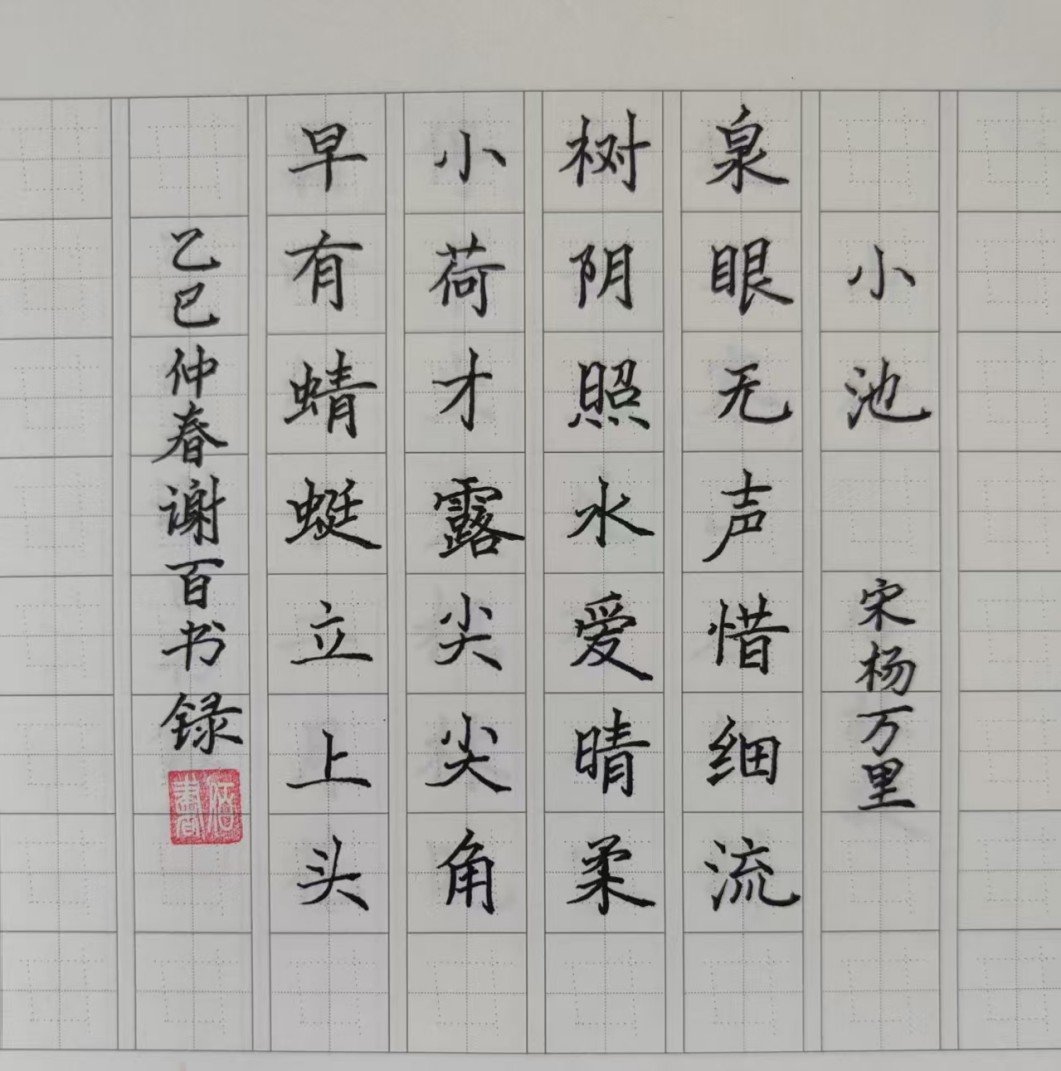 小池 宋杨万里
泉眼无声惜细流
树阴照水爱晴柔
小荷才露尖尖角
早有蜻蜓立上头
乙巳仲春谢百书录